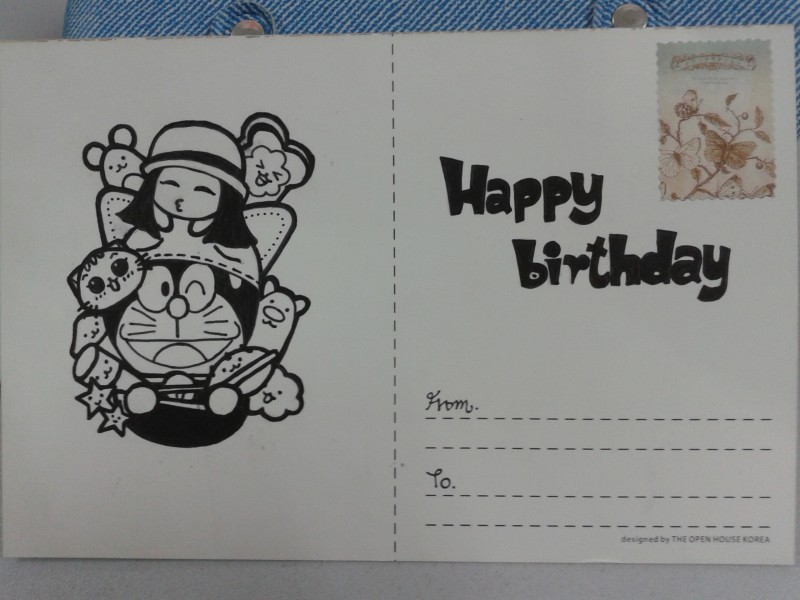 Happy
birthday
From.
To.
designed by THE OPEN HOUSE KOREA